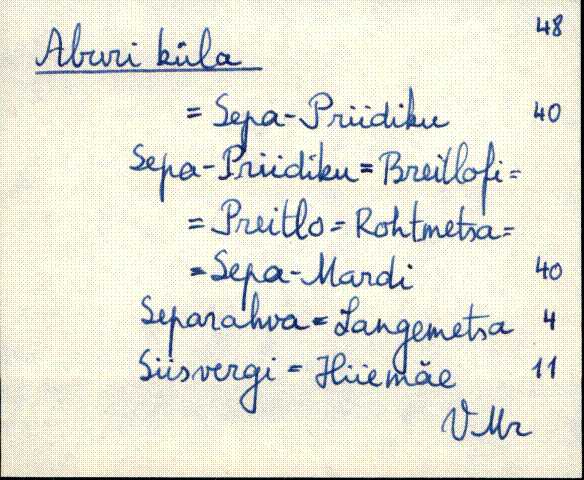 48
Aburi küla
= Sepa-Priidiku 40
Sepa-Priidiku = Breitlofi =
= Preitlo = Rohtmetsa =
= Sepa-Mardi 40
Separahva = Langemetsa 4
Siisvergi = Hiiemäe 11
VMr